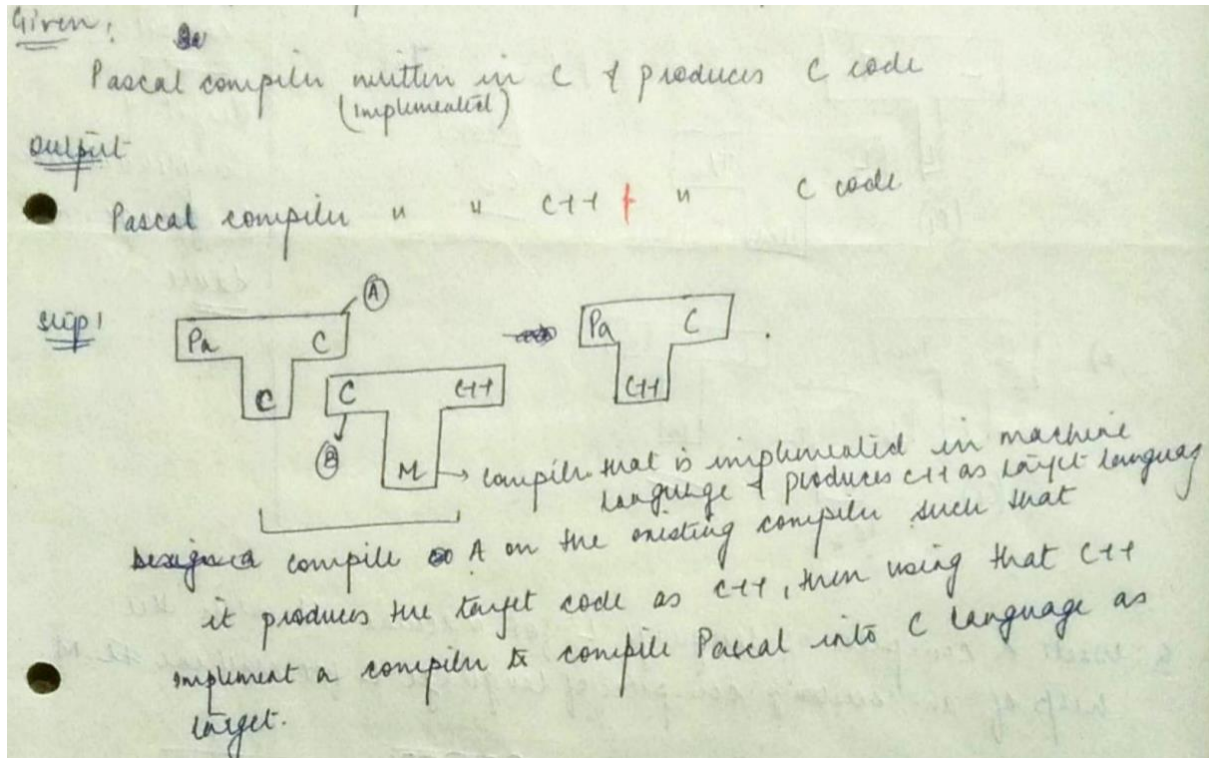 Given:
Pascal compiler written in C & produces C code
(implemented)
Output
Pascal compiler " " C++ & " C code
Step 1
A
Pa C
C
C C++
M
B
Pa C
C++
compiler that is implemented in machine
language & produces C++ as target language
compile A on the existing compiler such that
it produces the target code as C++, then using that C++
implement a compiler to compile Pascal into C language as
target.